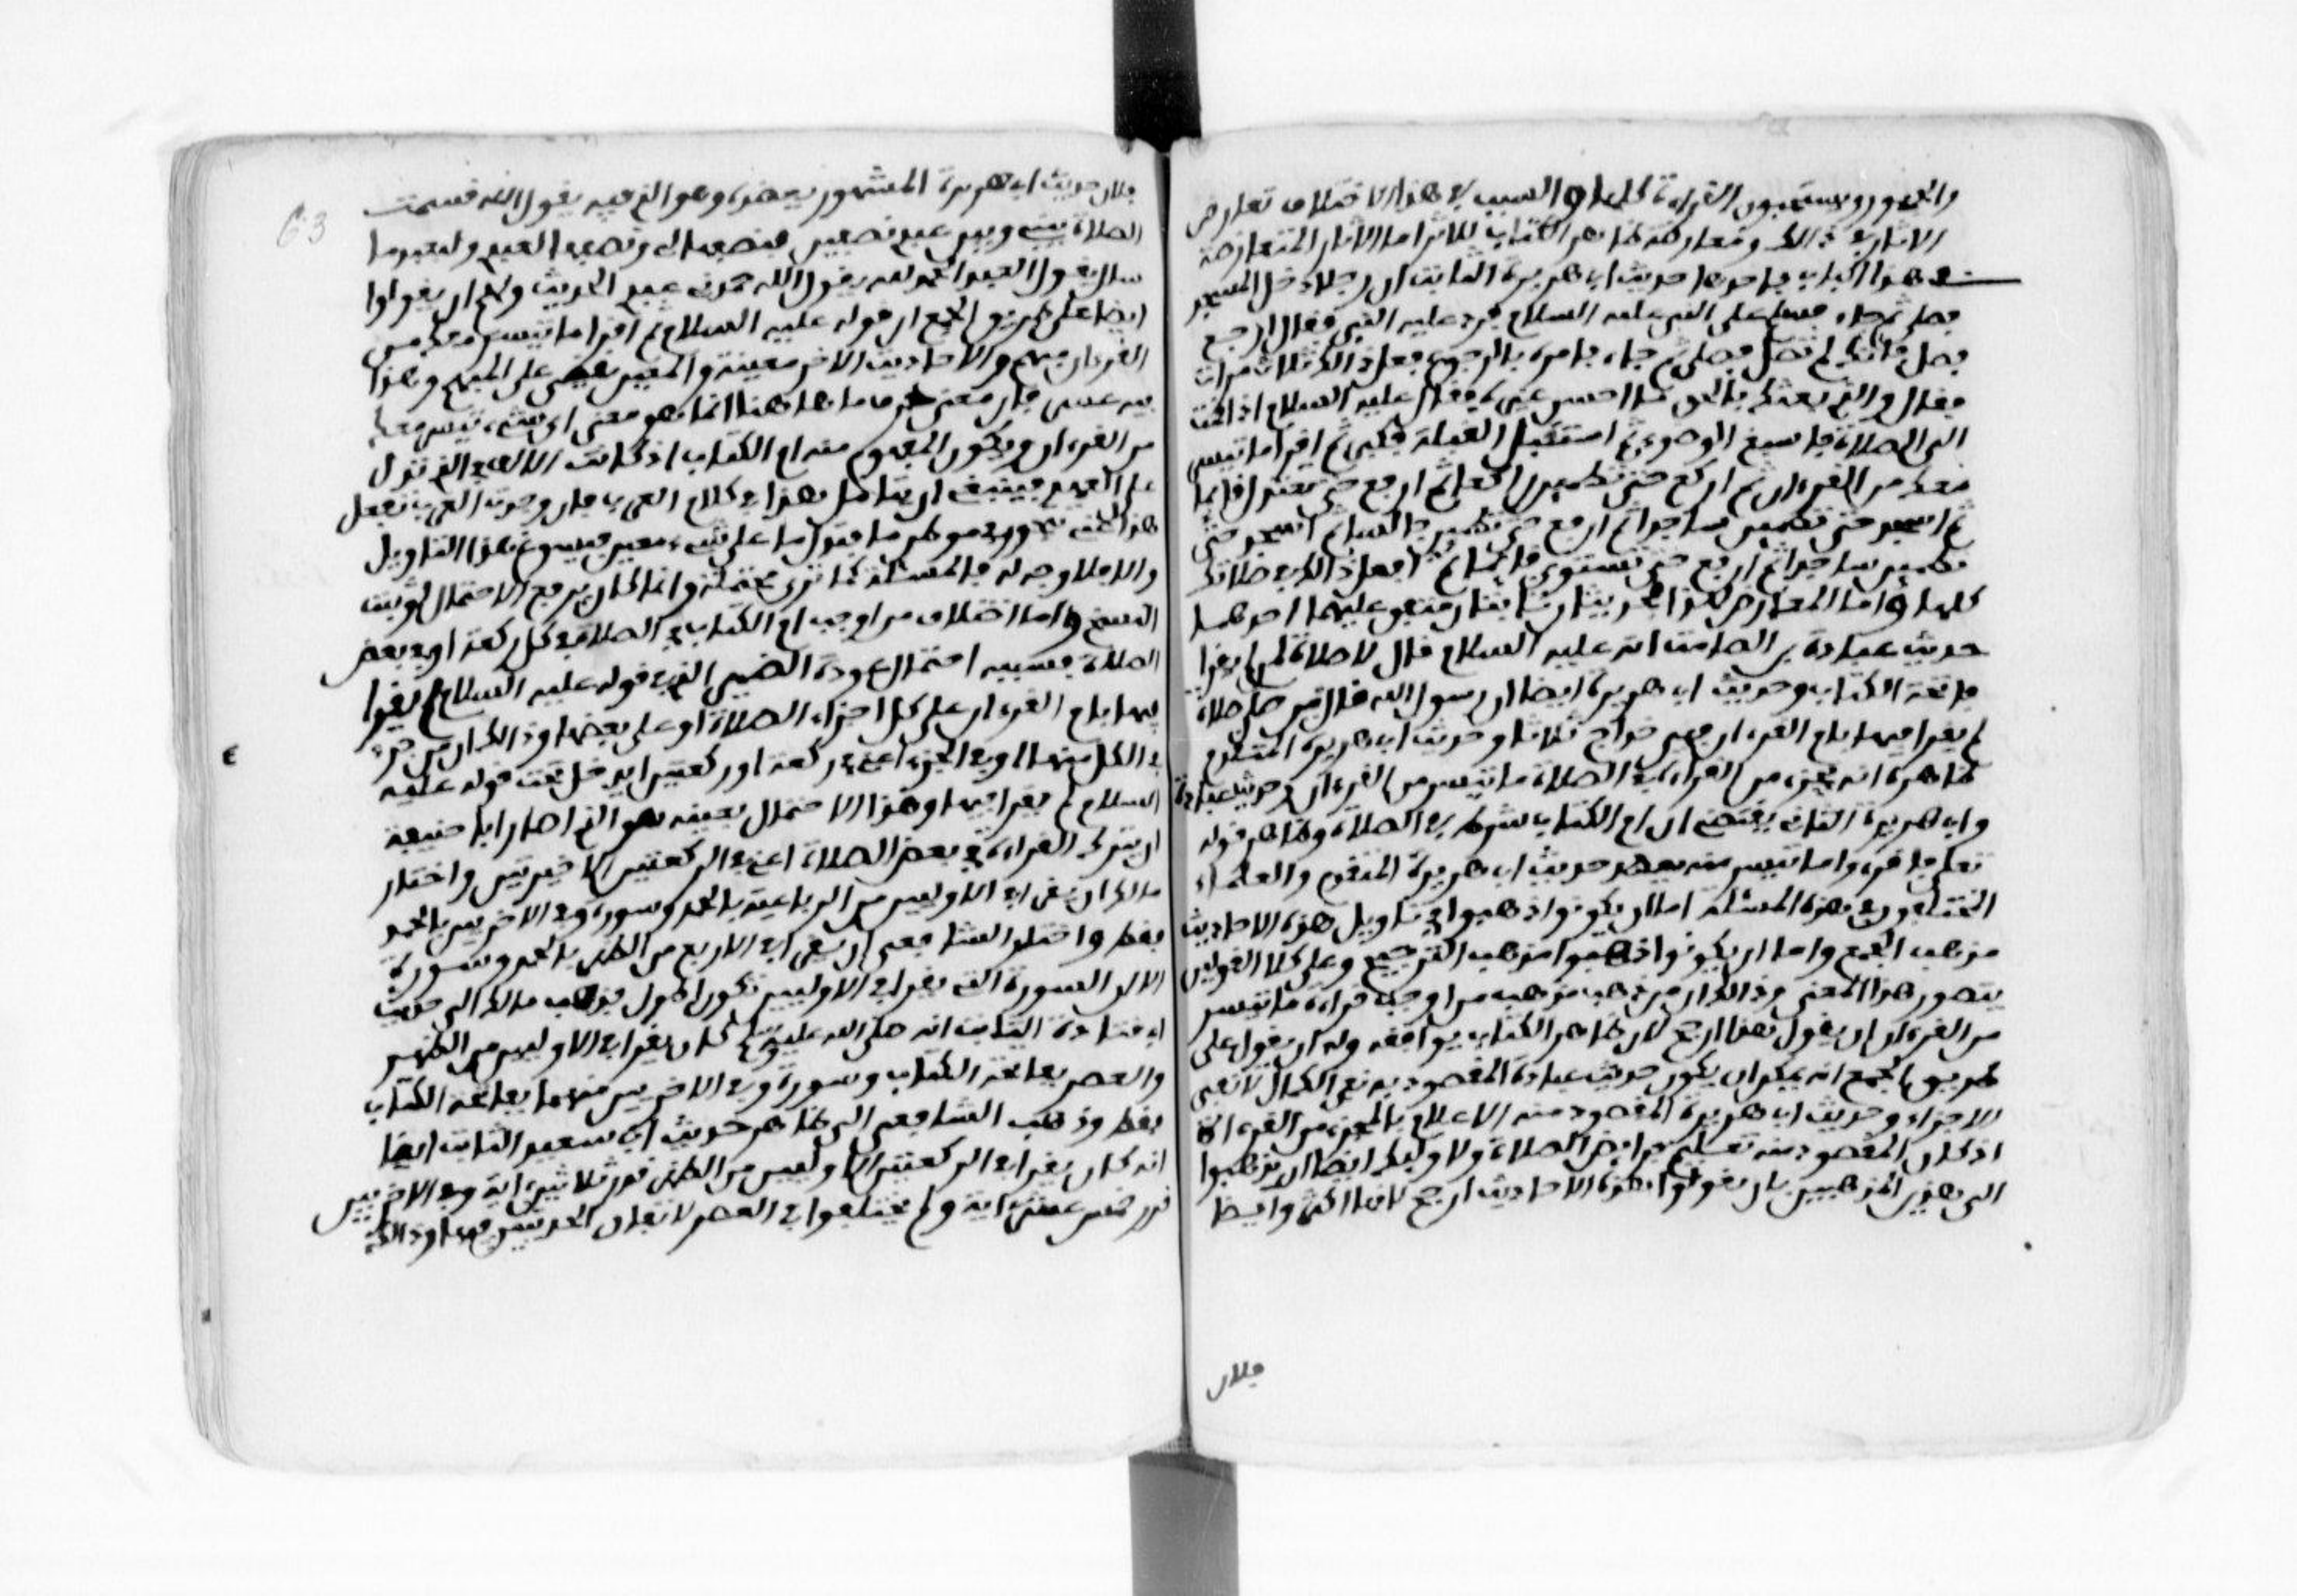 والجمهور يستحبون القراءة كلها والسبب في هذا الاختلاف تعارض
الاثار في ذالك ومعارضة ظاهر الكتاب للاثر اما الاثار المتعارضة
في هذا الباب فاحدها حديث ابي هريرة الثابت ان رجلا دخل المسجد
فصلى ثم جاء فسلم على النبي عليه السلام فرد عليه النبي فقال ارجع
فصل فانك لم تصل فصلى ثم جاء فامره بالرجوع فعل ذالك ثلاث مرات
فقال والذي بعثك بالحق ما احسن غيره فقال عليه السلام اذا قمت
الى الصلاة فاسبغ الوضوء ثم استقبل القبلة فكبر ثم اقرا ما تيسر
معك من القرءان ثم اركع حتى تطمين راكعا ثم ارفع حتى تعتدل قايما
ثم اسجد حتى تطمين ساجدا ثم ارفع حتى تطمين جالسا ثم اسجد حتى
تطمين ساجدا ثم ارفع حتى تستوي قايما ثم افعل ذالك في صلاتك
كلها واما المعارض لهذا فحديثان ثابتان متفق عليهما احدهما
حديث عبادة بن الصامت انه عليه السلام قال لا صلاة لمن لم يقرا
فاتحة الكتاب وحديث ابي هريرة ايضا ان رسول الله قال من صلى صلاة
لم يقرا فيها بام القرءان فهي خداج ثلاثا وحديث ابي هريرة المتقدم
ظاهره انه يجزء من القراءة في الصلاة ما تيسر من القرءان وحديث عبادة
وابي هريرة الثاني يقتضي ان ام الكتاب شرط في الصلاة وظاهر قوله
تعلى فاقرءوا ما تيسر منه يعضد حديث ابي هريرة المتقدم والعلماء
المختلفون في هذه المسئلة اما ان يكونوا ذهبوا في تاويل هذه الاحاديث
مذهب الجمع واما ان يكونوا ذهبوا مذهب الترجيح وعلى كلا القولين
يتصور هذا المعنى وذالك ان من ذهب مذهب من اوجب قراءة ما تيسر
من القرءان ان يقول هذا ارجح لان ظاهر الكتاب يوافقه وله ان يقول على
طريق الجمع انه يمكن ان يكون حديث عبادة المقصود به نفي الكمال لا نفي
الاجزاء وحديث ابي هريرة المقصود منه الاعلام بالمجزء من القراءة
اذ كان المقصود منه تعليم فرايض الصلاة ولاوليك ايضا ان يذهبوا
الى هذين المذهبين بان يقولوا هذه الاحاديث ارجح لانها اكثر وايضا
فلان
63
فلان حديث ابي هريرة المشهور يعضده وهو الذي فيه يقول الله قسمت
الصلاة بيني وبين عبدي نصفين فنصفها لي ونصفها لعبدي ولعبدي ما
سال يقول العبد الحمد لله يقول الله حمدني عبدي الحديث ولهم ان يقولوا
ايضا على طريق الجمع ان قوله عليه السلام ثم اقرا ما تيسر معك من
القرءان مبهم والاحاديث الاخر معينة والمعين يقضي على المبهم وهذا
فيه عسر فان معنى حرف ما هاهنا انما هو معنى اي شيء تيسر معك
من القرءان ويكون المفهوم منه ام الكتاب اذ كانت الالف التي تنزل
على العهد فينبغي ان يتامل هذا في كلام العرب فان وجدت العرب تفعل
هذا اعني تجوز في موطن ما فتدل ما على شيء معين فيسوغ هذا التاويل
والا فلا وجه له فالمسئلة كما ترى محتملة وانما كان يرفع الاحتمال لو ثبت
النسخ واما اختلاف من اوجب ام الكتاب في الصلاة في كل ركعة او في بعض
الصلاة فسببه احتمال عودة الضمير الذي في قوله عليه السلام لم يقرا
فيها بام القرءان على كل اجزاء الصلاة او على بعضها وذالك ان من جزء
في الكل منها او في الجزء اعني في ركعة او ركعتين لم يدخل تحت قوله عليه
السلام لم يقرا فيها وهذا الاحتمال بعينه هو الذي اصار ابا حنيفة
ان يترك القراءة في بعض الصلاة اعني في الركعتين الاخيرتين واختار
مالك ان يقرا في الاوليين من الرباعية بالحمد وسورة وفي الاخريين بالحمد
فقط واختار الشافعي ان يقرا في الاربع من الظهر بالحمد وسورة
الا ان السورة التي يقرا في الاوليين تكون اطول فذهب مالك الى حديث
ابي قتادة الثابت انه صلى الله عليه وسلم كان يقرا في الاوليين من الظهر
والعصر بفاتحة الكتاب وسورة وفي الاخريين منهما بفاتحة الكتاب
فقط وذهب الشافعي الى ظاهر حديث ابي سعيد الثابت ايضا
انه كان يقرا في الركعتين الاوليين من الظهر قدر ثلاثين اية وفي الاخريين
قدر خمس عشرة اية ولم يختلفوا في العصر لاتفاق الحديثين فيها وذالك